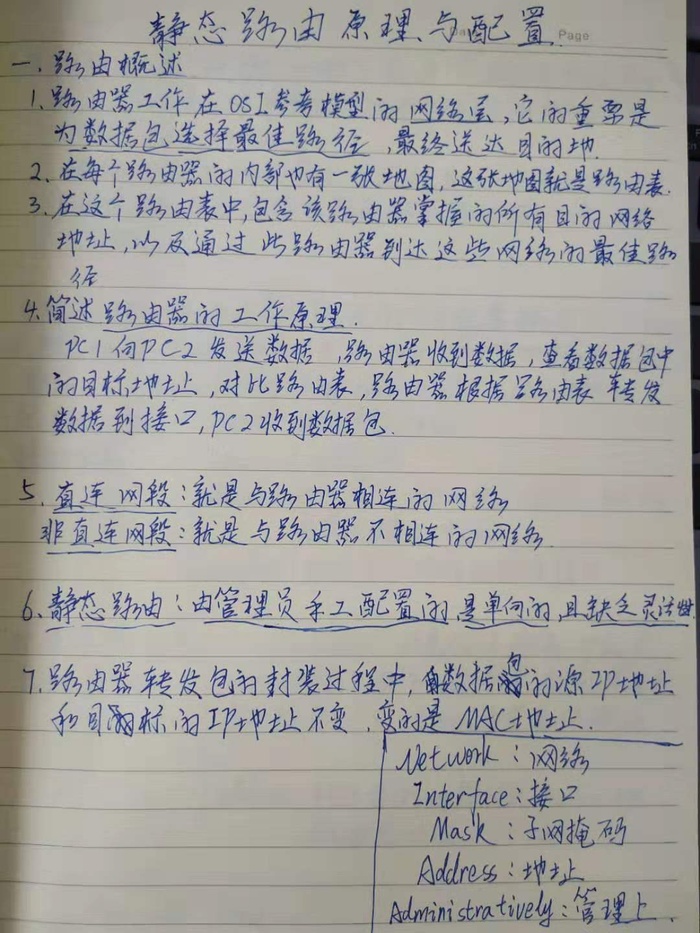 静态路由原理与配置
Page
一、路由概述
1、路由器工作在OSI参考模型的网络层,它的重要是
为数据包选择最佳路径,最终送达目的地.
2、在每个路由器的内部也有一张地图,这张地图就是路由表.
3、在这个路由表中,包含该路由器掌握的所有目的网络
地址,以及通过此路由器到达这些网络的最佳路
径
4、简述路由器的工作原理.
PC1向PC2发送数据,路由器收到数据,查看数据包中
的目标地址,对比路由表,路由器根据路由表转发
数据到接口,PC2收到数据包.
5、直连网段:就是与路由器相连的网络
非直连网段:就是与路由器不相连的网络
6、静态路由:由管理员手工配置的是单向的,且缺乏灵活性
7、路由器转发包的封装过程中,数据包的源IP地址
和目标的IP地址不变,变的是MAC地址.
Network:网络
Interface:接口
Mask:子网掩码
Address:地址
Administratively:管理上.